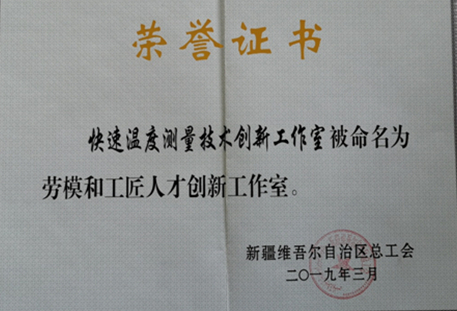 荣誉证书
快速温度测量技术创新工作室被命名为
劳模和工匠人才创新工作室。
新疆维吾尔自治区总工会
二〇一九年三月